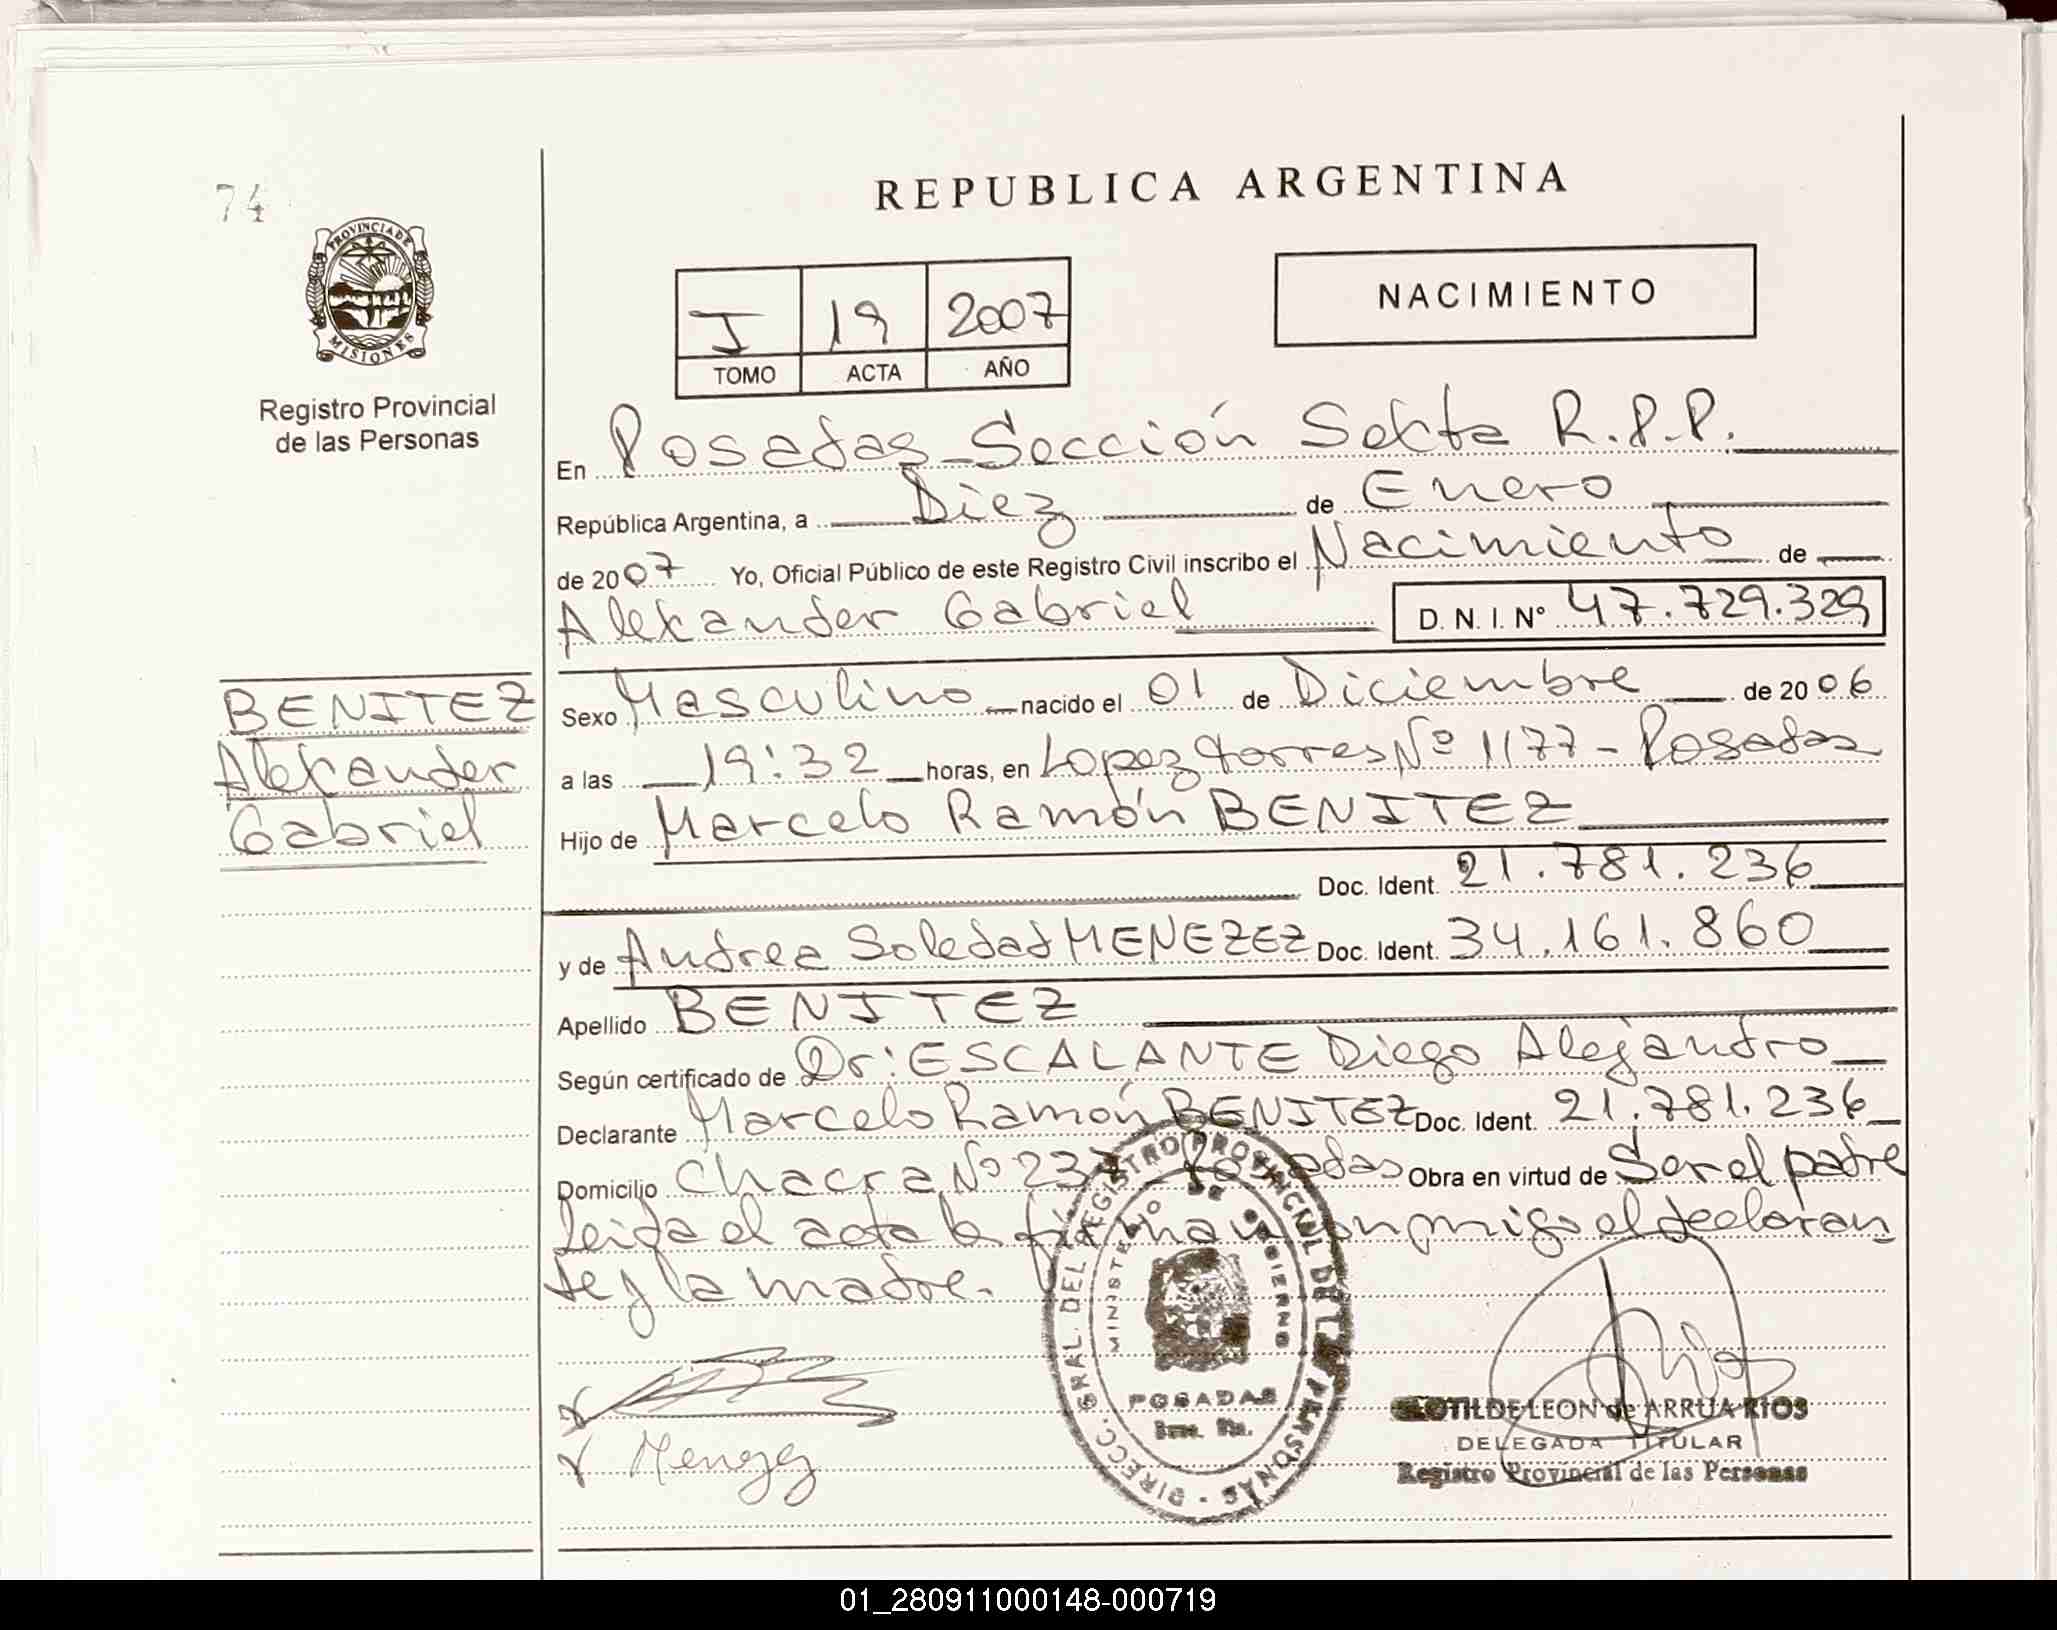 74
REPUBLICA ARGENTINA
PROVINCIA DE
MISIONES
Registro Provincial
de las Personas
I 19 2007
TOMO ACTA AÑO
NACIMIENTO
En Posadas - Sección Sexta R.P.P.
República Argentina, a Diez de Enero
de 2007 Yo, Oficial Público de este Registro Civil inscribo el Nacimiento de
Alexander Gabriel D. N. I. Nº 47.729.329
BENITEZ
Alexander
Gabriel
Sexo Masculino nacido el 01 de Diciembre de 2006
a las 19:32 horas, en Lopez torres Nº 1177 - Posadas
Hijo de Marcelo Ramón BENITEZ
Doc. Ident. 21.781.236
y de Andrea Soledad MENEZEZ Doc. Ident. 34.161.860
Apellido BENITEZ
Según certificado de Dr: ESCALANTE Diego Alejandro
Declarante Marcelo Ramón BENITEZ Doc. Ident. 21.781.236
Domicilio Chacra Nº 237 Posadas Obra en virtud de Ser el padre
leida el acta la firman conmigo el declaran
te y la madre.
DIRECC. GRAL. DEL REGISTRO PROVINCIAL DE LAS PERSONAS
MINISTERIO DE GOBIERNO
POSADAS
Menezez
CLOTILDE LEON de ARRUA RIOS
DELEGADA TITULAR
Registro Provincial de las Personas
01_280911000148-000719